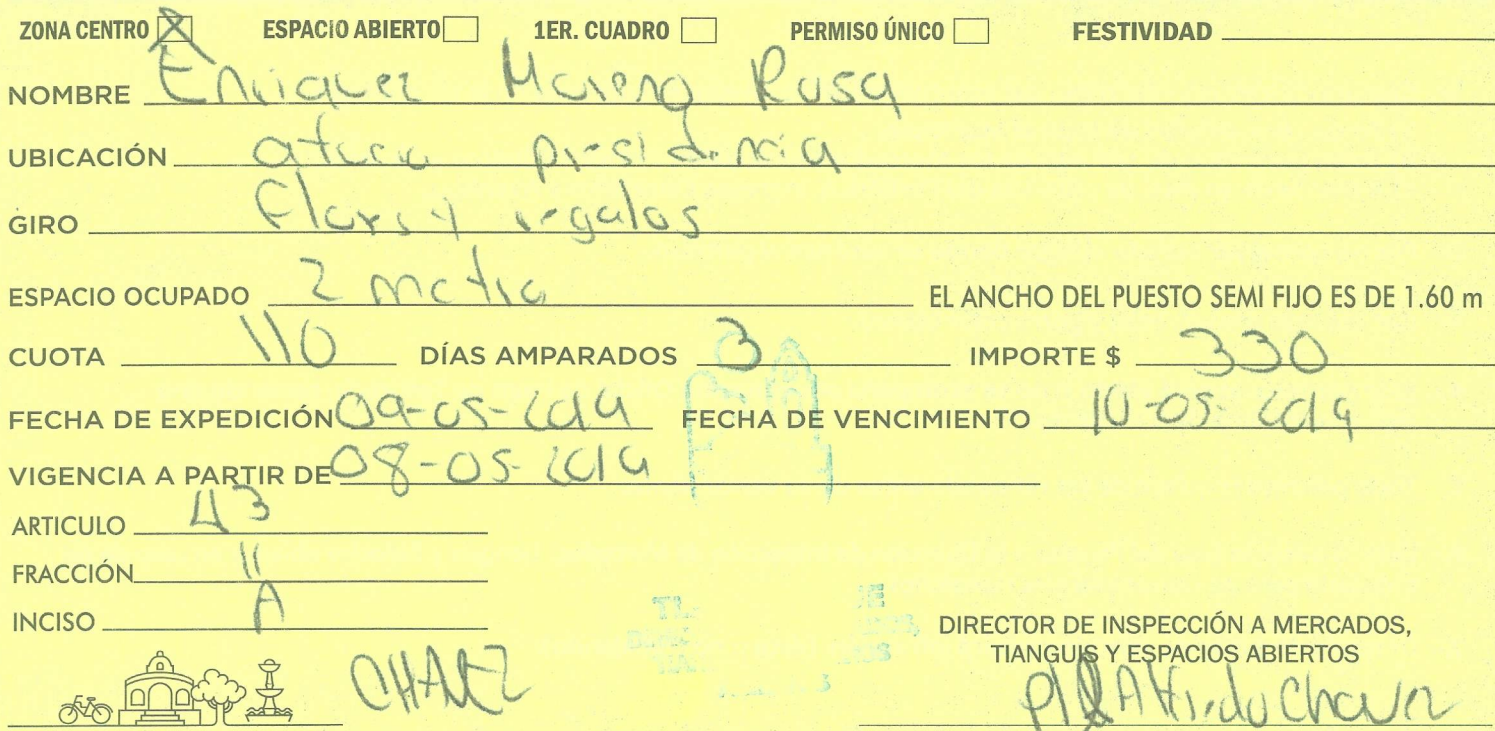 ZONA CENTRO X ESPACIO ABIERTO 1ER. CUADRO PERMISO ÚNICO FESTIVIDAD
NOMBRE Enriquez Moreno Rosa
UBICACIÓN afuera presidencia
GIRO flores y regalos
ESPACIO OCUPADO 2 metro EL ANCHO DEL PUESTO SEMI FIJO ES DE 1.60 m
CUOTA 110 DÍAS AMPARADOS 3 IMPORTE $ 330
FECHA DE EXPEDICIÓN 09-05-2019 FECHA DE VENCIMIENTO 10-05-2019
VIGENCIA A PARTIR DE 08-05-2019
ARTICULO 43
FRACCIÓN II
INCISO A
DIRECTOR DE INSPECCIÓN A MERCADOS,
TIANGUIS Y ESPACIOS ABIERTOS
CHAVEZ
Alfredo Chavez